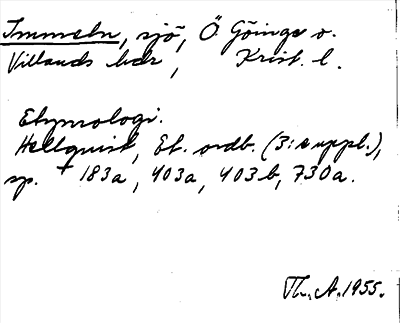 Immeln, sjö, Ö. Göinge o.
Villands hdr, Krist. l.
Etymologi.
Hellquist, Et. ordb. (3: e uppl.),
sp. 183a, 403a, 403b, 730a.
Th. A. 1955.